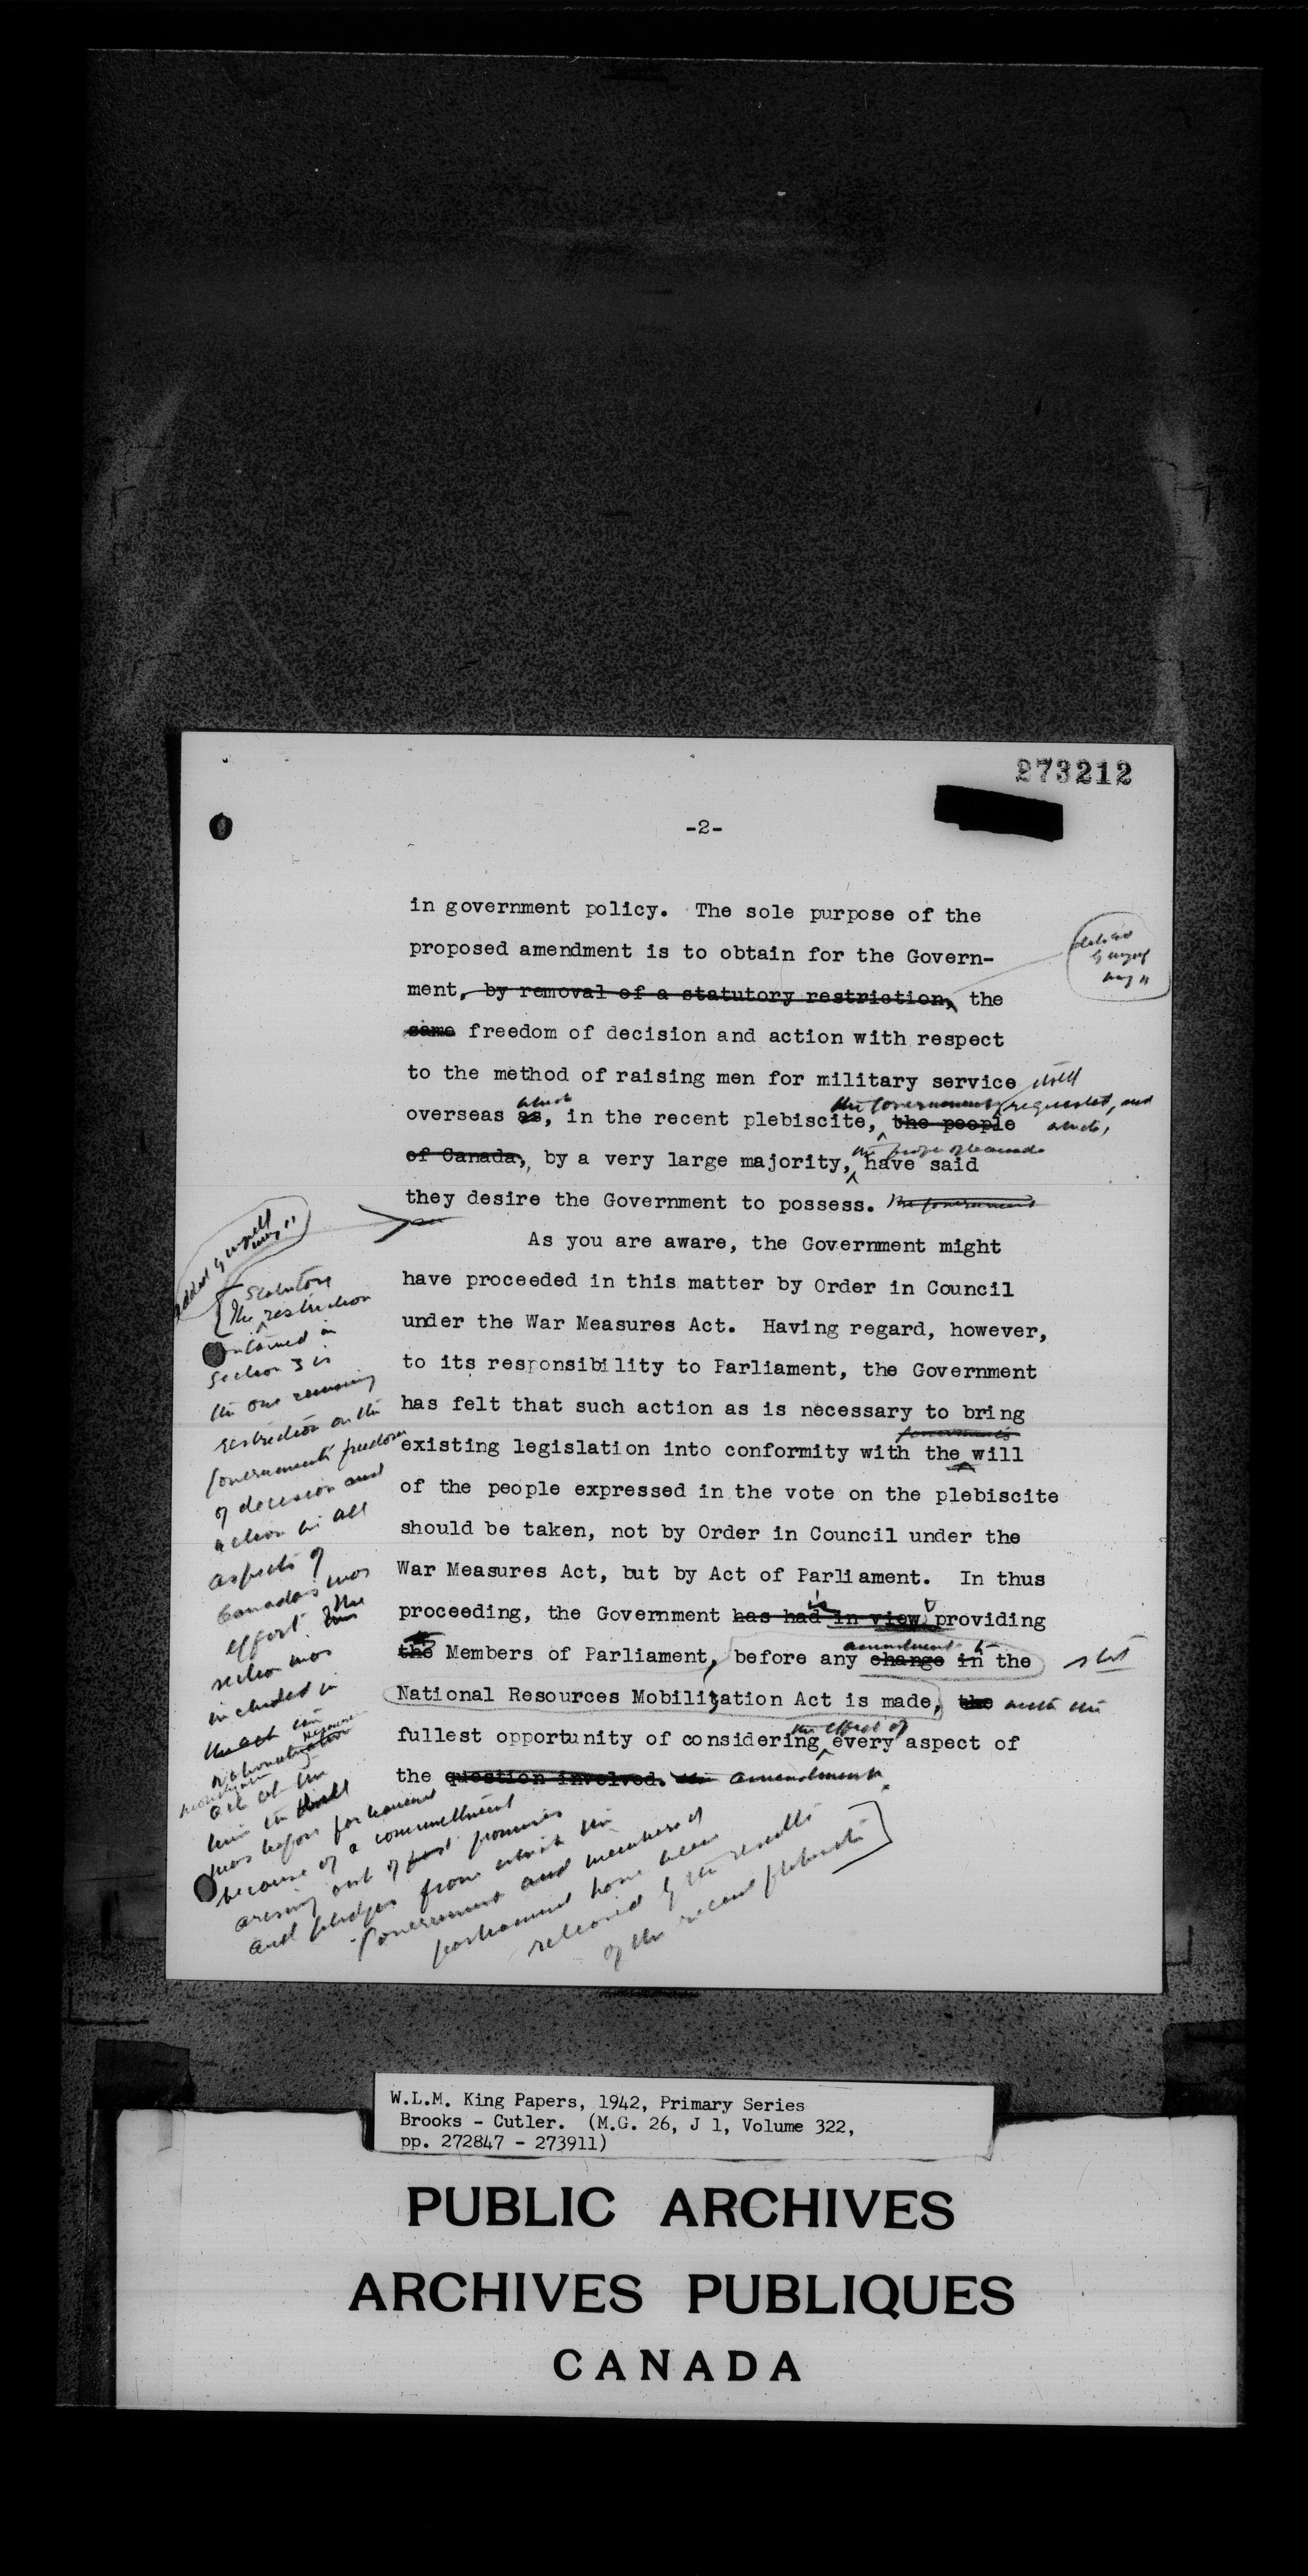 273212
-2-
in government policy. The sole purpose of the
proposed amendment is to obtain for the Govern-
ment, by removal of a statutory restriction, the
same freedom of decision and action with respect
to the method of raising men for military service itself
which the Government requested, and
overseas as, in the recent plebiscite, the people which,
the people of Canada
of Canada, by a very large majority, have said
they desire the Government to possess. The Government
As you are aware, the Government might
have proceeded in this matter by Order in Council
under the War Measures Act. Having regard, however,
to its responsibility to Parliament, the Government
has felt that such action as is necessary to bring
existing legislation into conformity with the will
of the people expressed in the vote on the plebiscite
should be taken, not by Order in Council under the
War Measures Act, but by Act of Parliament. In thus
is
proceeding, the Government has had in view providing
amendment to
the Members of Parliament, before any change in the stet
National Resources Mobilization Act is made, the with the
the effect of
fullest opportunity of considering every aspect of
the question involved. the amendment.
deleted
by myself
May 11
added by myself
May 11
Statutory
The restriction
contained in
Section 3 is
the one remaining
restriction on the
Government's freedom
of decision and
action in all
aspects of
Canada's war
effort. The
section was
included in
the act
Resources
act at the
time the
was before parliament
because of a commitment
arising out of past promises
and pledges from which the
Government and members of
parliament have been
released by the results
of the recent plebiscite
W.L.M. King Papers, 1942, Primary Series
Brooks - Cutler. (M.G. 26, J 1, Volume 322,
pp. 272847 - 273911)
PUBLIC ARCHIVES
ARCHIVES PUBLIQUES
CANADA